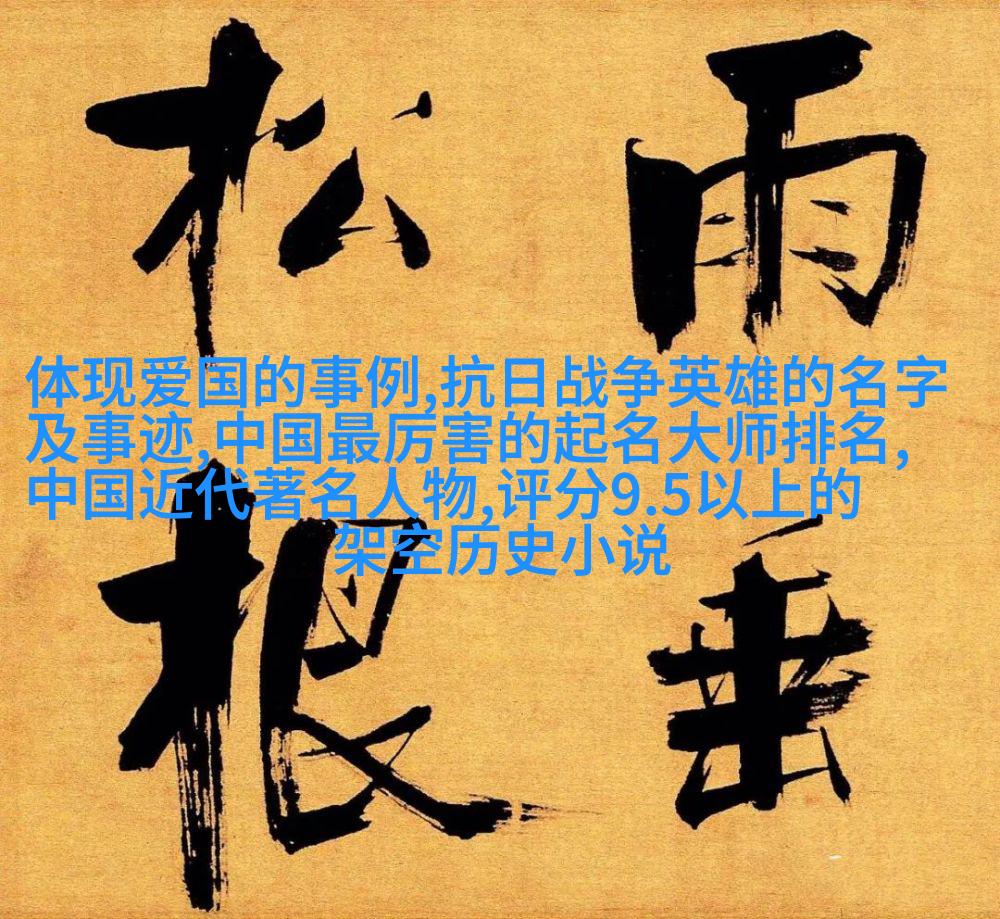 雨垂
松根
体现爱国的事例,抗日战争英雄的名字
及事迹,中国最厉害的起名大师排名,
中国近代著名人物,评分9.5以上的
架空历史小说